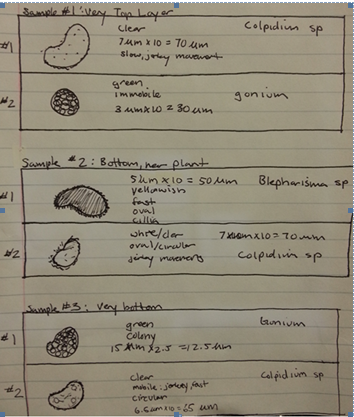 Sample #1: Very Top Layer
#1 clear Colpidium sp
7 µm x 10 = 70 µm
slow, jerky movement
#2 green
immobile gonium
3 µm x 10 = 30 µm
Sample #2: Bottom, near plant
#1 5 µm x 10 = 50 µm Blepharisma sp
yellowish
fast
oval
cillia
#2 white/clear 7 x 10 = 70 µm
oval/circular
jerky movements Colpidium sp
Sample #3: Very bottom
#1 green Gonium
colony
15 µm x 2.5 = 12.5 µm
#2 clear Colpidium sp
mobile, jerky, fast
circular
6.5 µm x 10 = 65 µm